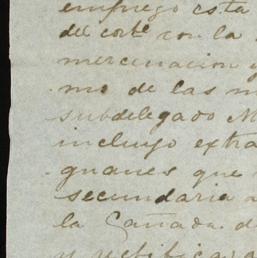 empreyo esta
del corte con la
mercinacion y
mo de las m
subdelegado M
incluyo extra
guanes que
secundaria a
la Cañada. d
y rectificara